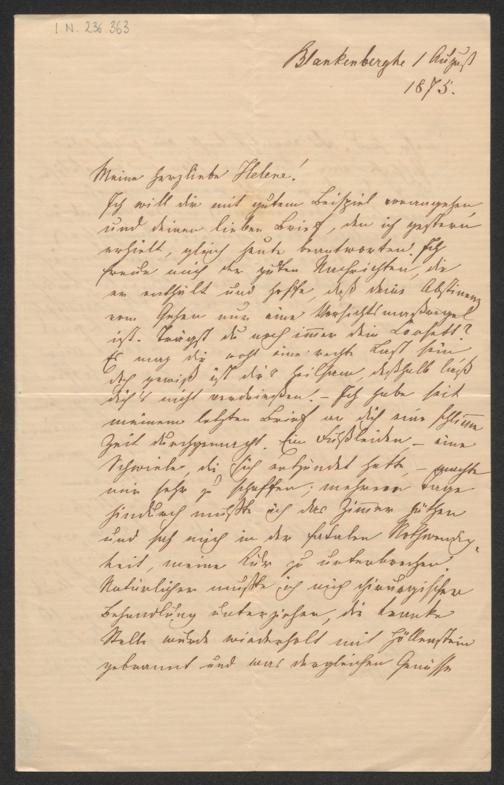 I N. 236.363
Blankenberghe 1 August
1875.
Meine herzliebe Helene!
Ich will dir mit gutem Beispiel vorangehen
und deinen lieben Brief, den ich gestern
erhielt, gleich heute beantworten. Ich
freue mich der guten Nachrichten, die
er enthält und hoffe, daß deine Abstinenz
vom Gehen nur eine Vorsichtsmaßregel
ist. Trägst du noch immer dein Korsett?
Es mag dir wohl eine rechte Last sein
doch gewiß ist dir's heilsam, deßhalb laß
dich's nicht verdrießen. – Ich habe seit
meinem letzten Brief an dich eine schlimme
Zeit durchgemacht. Ein Fußleiden, – eine
Schwiele, die sich entzündet hatte, – machte
mir sehr zu schaffen; mehrere Tage
hindurch mußte ich das Zimmer hüten
und sah mich in der fatalen Nothwendig-
keit, meine Kur zu unterbrechen.
Natürlicher mußte ich mich chirurgischer
Behandlung unterziehen, die kranke
Stelle wurde wiederholt mit Höllenstein
gebrannt und was dergleichen Genüsse